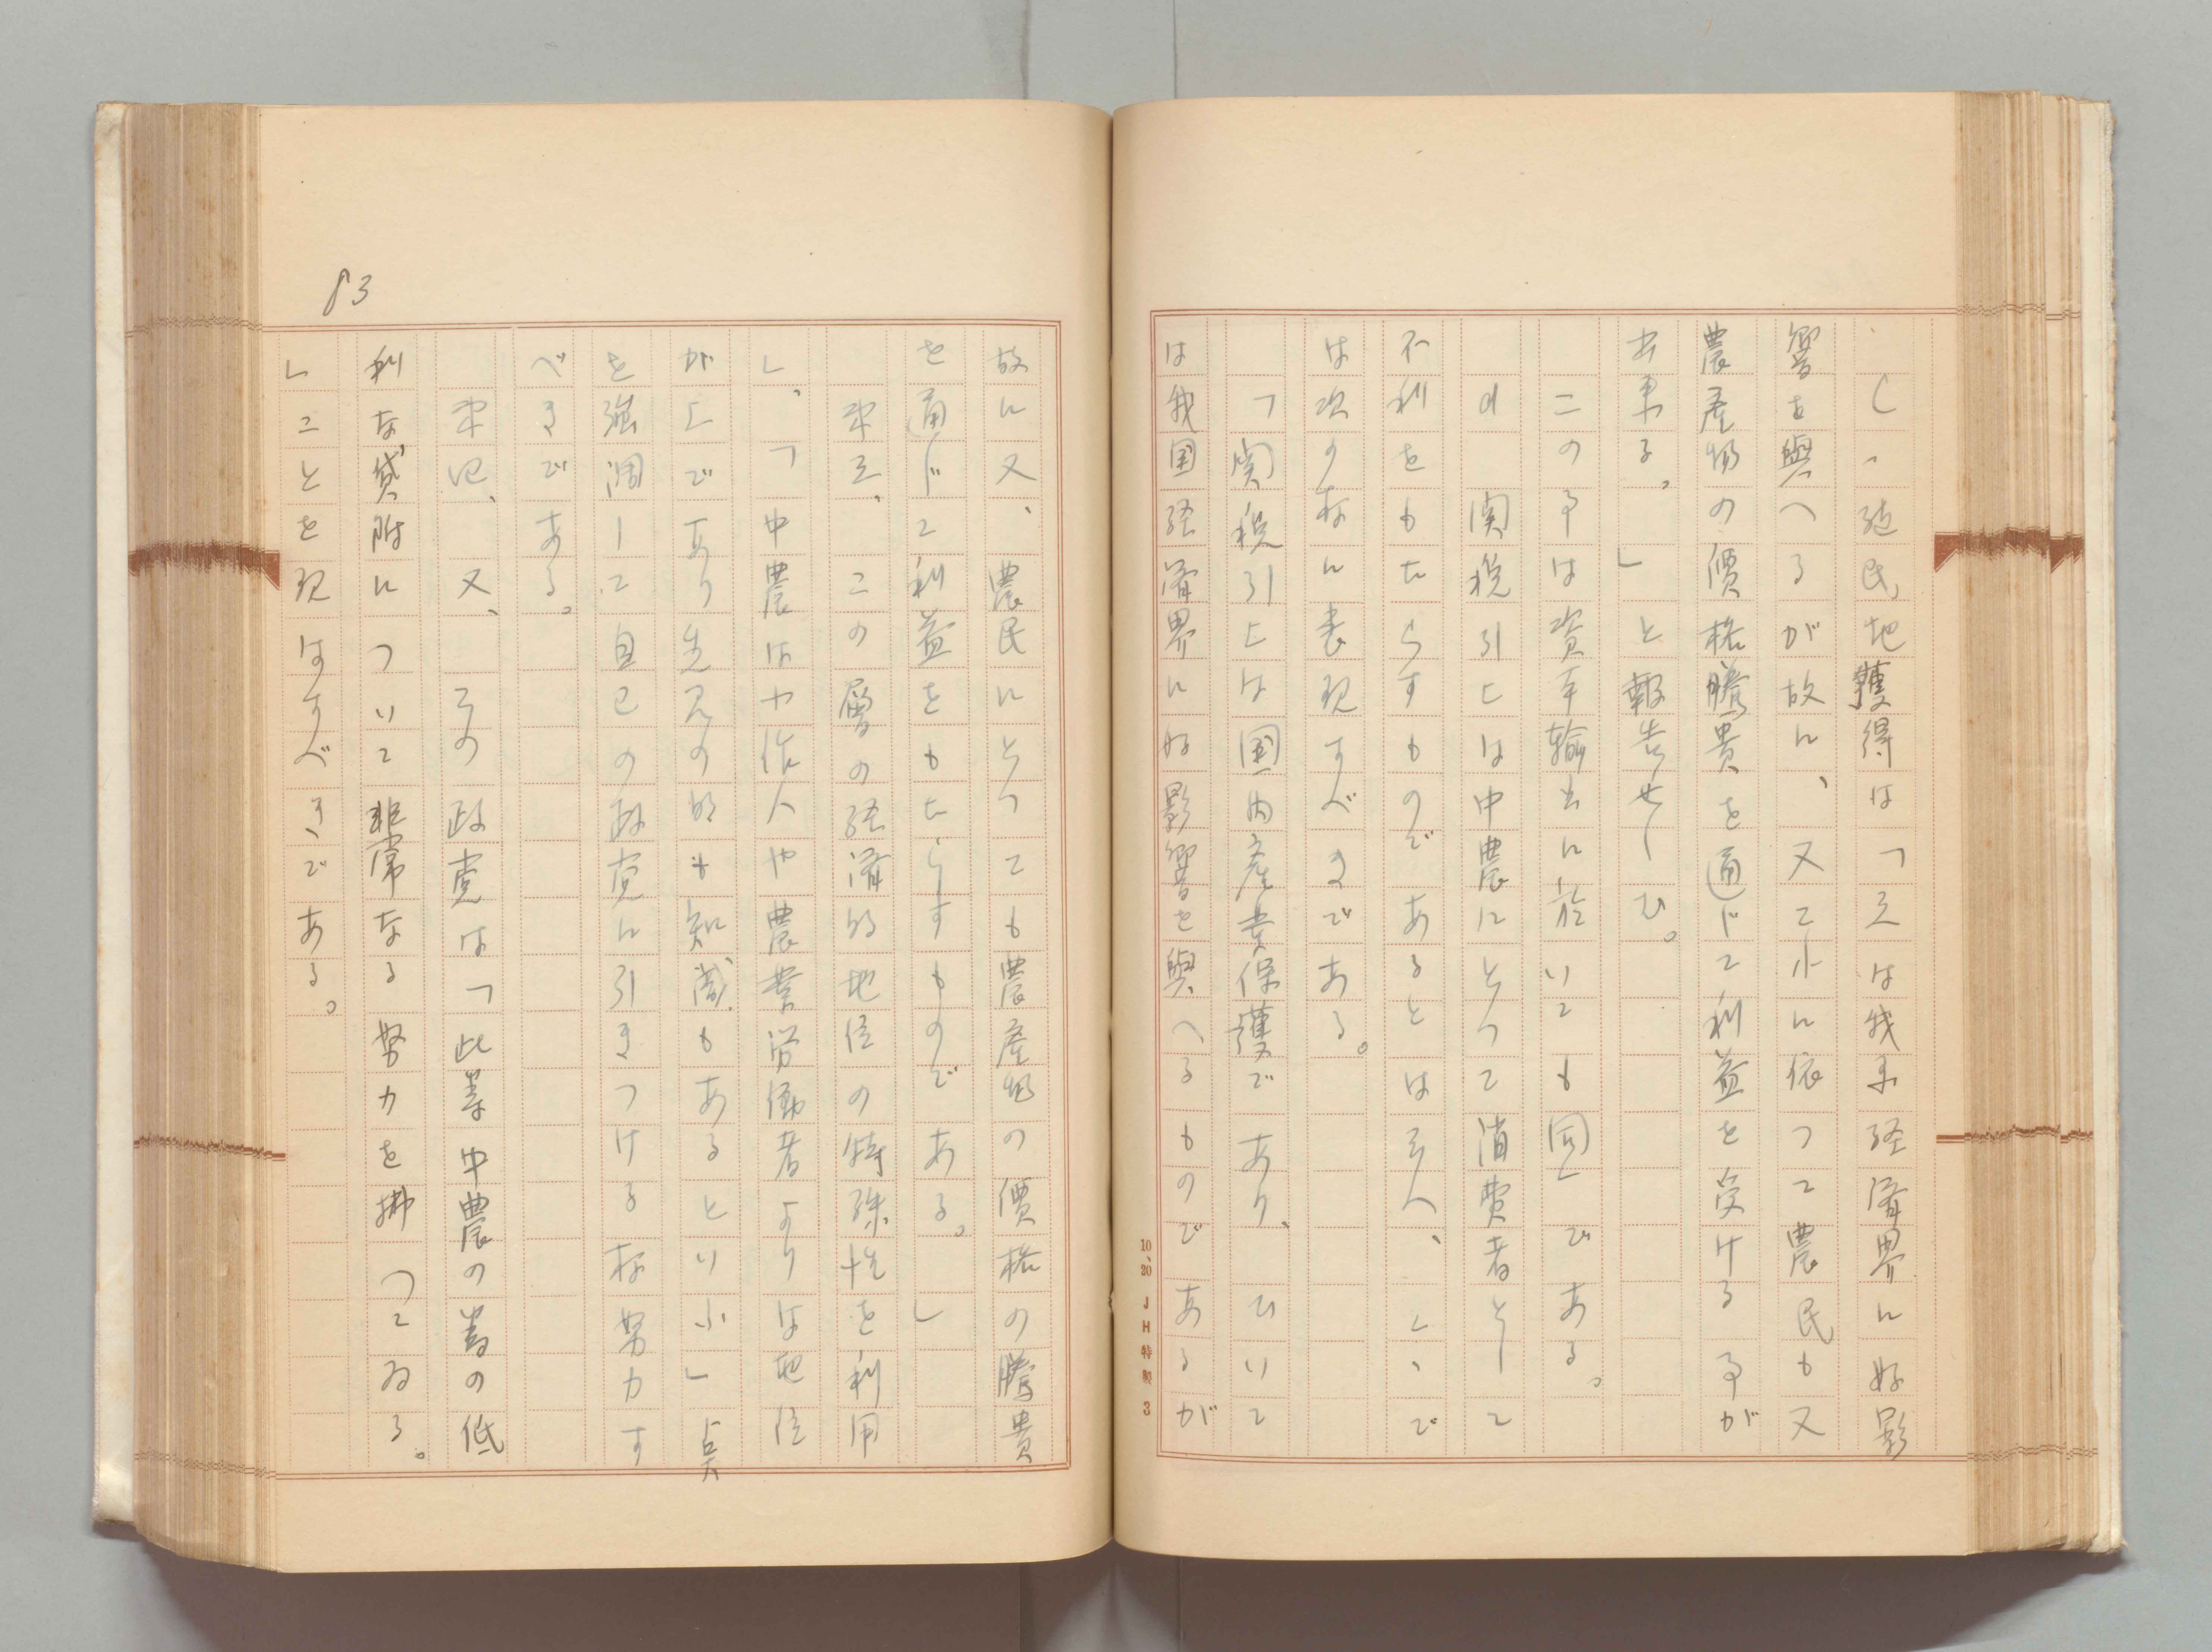 し、殖民地獲得は「之は我等経済界に好影
響を與へるが故に、又之れに依つて農民も又
農産物の價格騰貴を通じて利益を受ける事が
出来る。」と報告せしむ。
この事は資本輸出に於いても同じである。
関税引上は中農にとつて消費者として
不利をもたらすものであるとは云へ、こゝで
は次の様に表現すべきである。
「関税引上は国内産業保護であり、ひいて
は我国経済界に好影響を與へるものであるが
10、20 JH特製 3
故に又、農民にとつても農産物の價格の騰貴
を通じて利益をもたらすものである。」
第三、この層の経済的地位の特殊性を利用
し、「中農は小作人や農業労働者よりは地位
が上であり先見の明も知識もあるといふ」点
を強調して自己の政党に引きつける様努力す
べきである。
第四、又、その政党は「此等中農の為の低
利な貸附について非常なる努力を拂つてゐる。
」ことを現はすべきである。
83